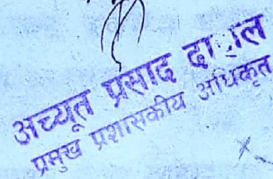 अच्यूत प्रसाद दाहाल
प्रमुख प्रशासकीय अधिकृत